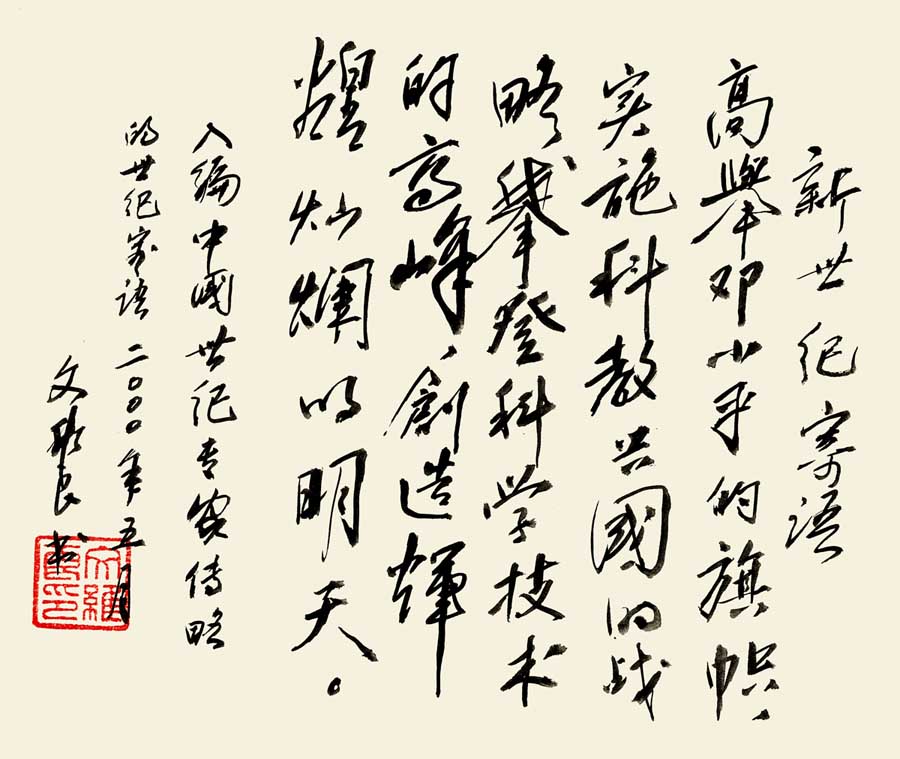 新世纪寄语
高舉邓小平的旗帜、
实施科教兴國的战
略攀登科学技术
的高峰、創造輝
煌灿爛的明天。
入编中國世纪专家传略
的世纪寄语 二〇〇〇年五月
文维良书
文維良印